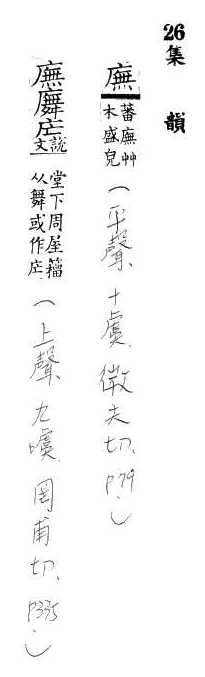 26集韻
廡 蕃廡艸木盛皃（平聲、十虞、微夫切、p79.）
廡㢢庑 說文 堂下周屋籀从舞或作庑（上聲、九噳、罔甫切、p335.）